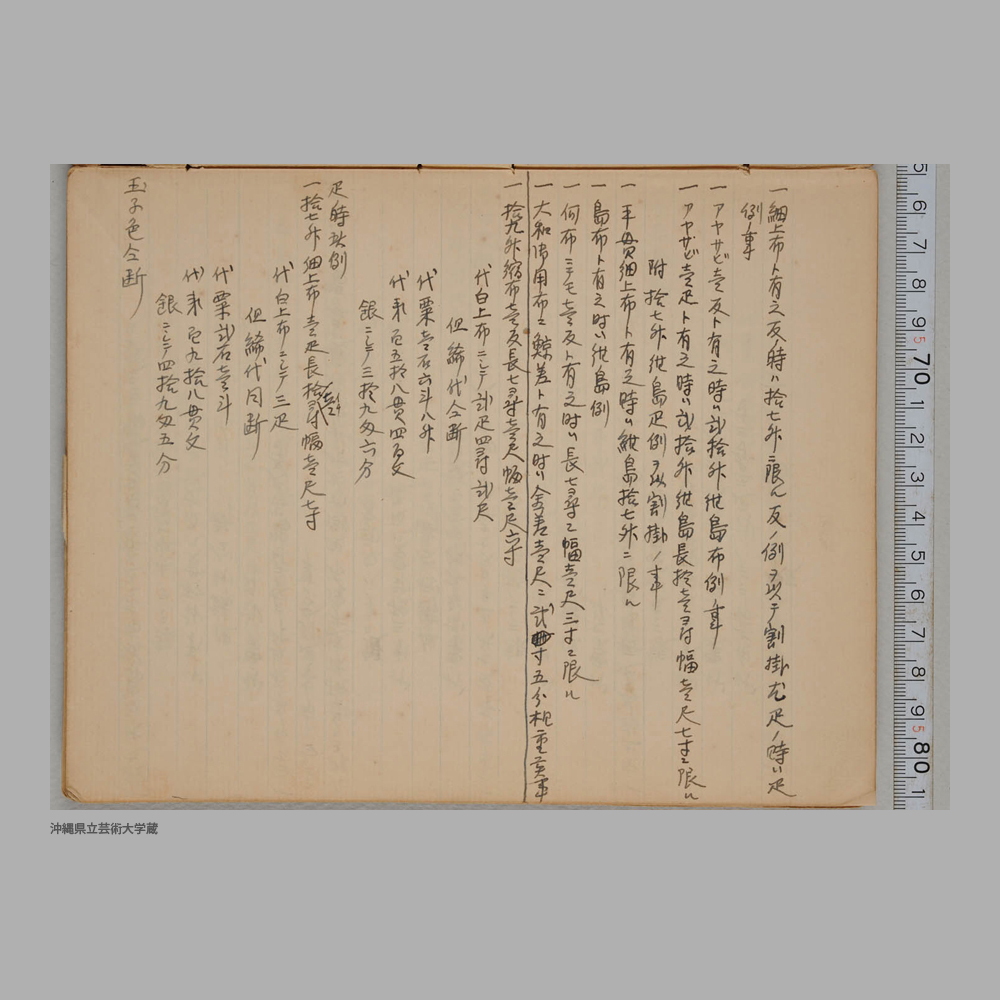 一 細上布ト有之反ノ時ハ拾七舛ニ限ル反ノ例ヲ以テ割掛尤疋ノ時ハ疋
例ノ事
一 アヤサビ壱反ト有之時ハ弐拾舛紺島布例ノ事
一 アヤサビ壱疋ト有之時ハ弐拾舛紺島長拾壱尋幅壱尺七寸ニ限ル
附 拾七舛紺島疋例ヲ以割掛ノ事
一 平貫細上布ト有之時ハ紺島拾七舛ニ限ル
一 島布ト有之時ハ紺島例
一 何布ニテモ壱反ト有之時ハ長七尋ニ幅壱尺三寸ニ限ル
一 大和御用布ニ鯨差ト有之時ハ金差壱尺ニ弐寸五分相重
一 拾九舛縮布壱反長七尋壱尺幅壱尺六寸
代白上布ニシテ弐疋四尋弐尺
但 締代仝断
代粟壱石六斗八舛
代釆百五拾八貫四百文
銀ニシテ三拾九匁六分
疋時紋例
一 拾七舛細上布壱疋長拾尋幅壱尺七寸
代白上布ニシテ三疋
但締代同断
代粟弐石壱斗
代釆百九拾八貫文
銀ニシテ四拾九匁五分
玉子色仝断
5 6 7 8 9 5 70 1 2 3 4 5 6 7 8 9 5 80 1
沖縄県立芸術大学蔵